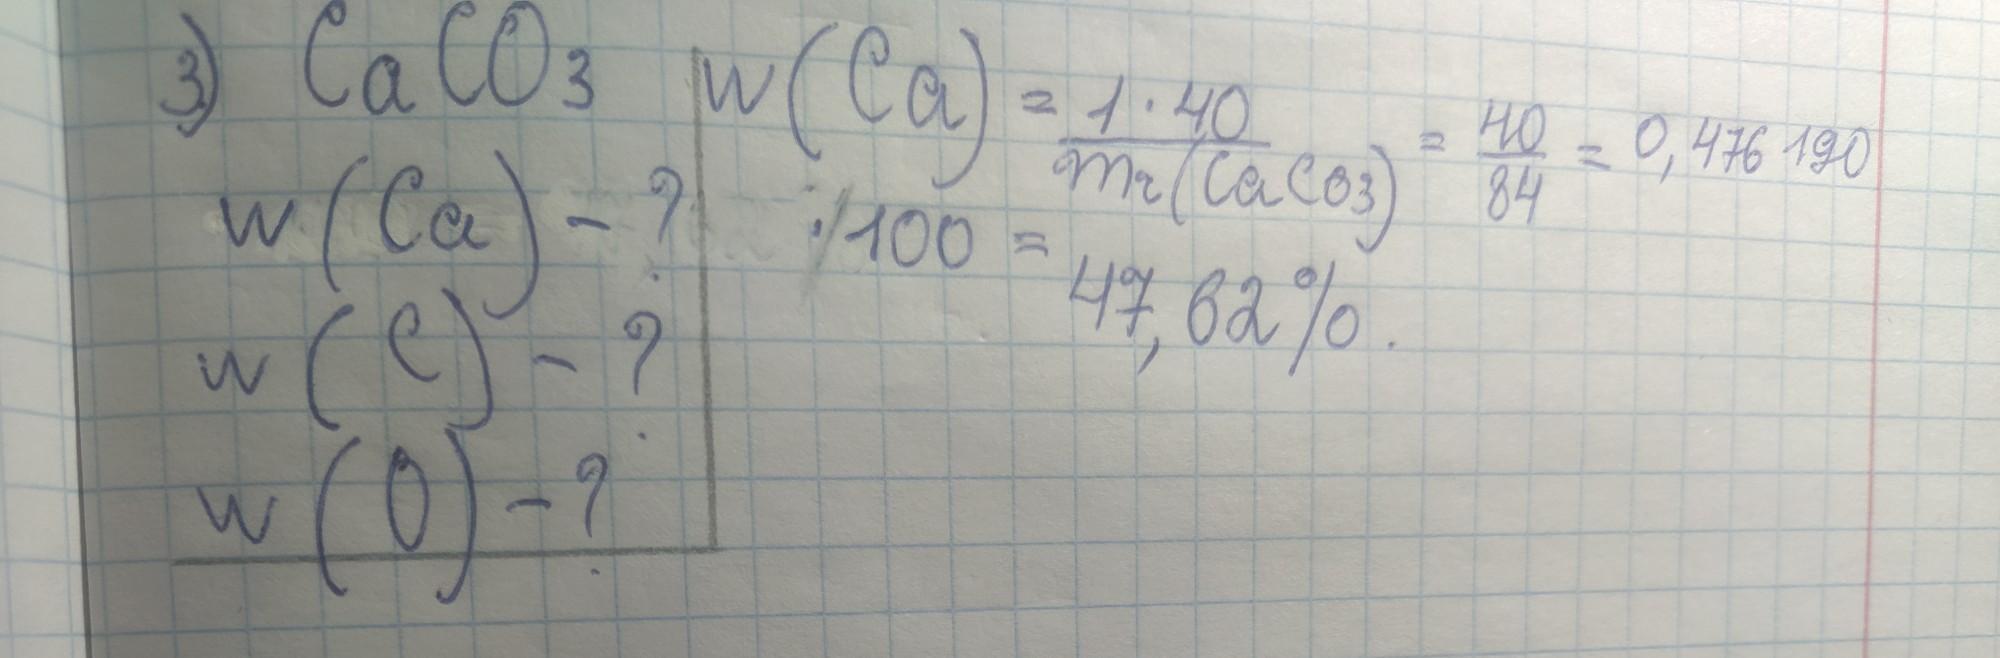 3) CaCO3
w (Ca) - ?
w (C) - ?
w (O) - ?
w (Ca) = 1 · 40 / Mr (CaCO3) = 40 / 84 = 0,476 190
· 100 =
47,62 %.